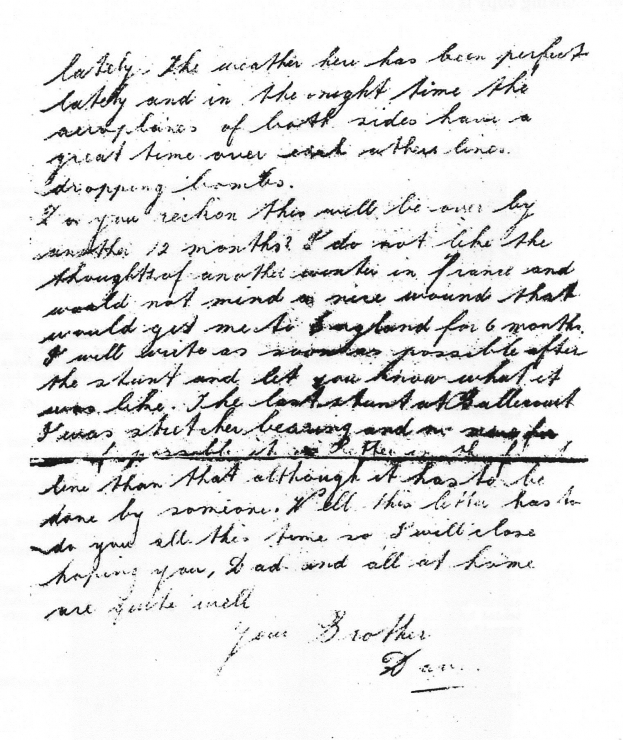 lately. The weather here has been perfect
lately and in the night time the
aeroplanes of both sides have a
great time over each others lines.
dropping bombs.
Do you reckon this will be over by
another 12 months? I do not like the
thoughts of another winter in France and
would not mind a nice wound that
would get me to England for 6 months.
I will write as soon as possible after
the stunt and let you know what it
was like. The last stunt at Bullecourt
I was stretcher bearing and no
if possible it is better in the
line than that although it has to be
done by someone. Well this letter has to
do you all this time so I will close
hoping you, Dad and all at home
are quite well
Your Brother
Dan.